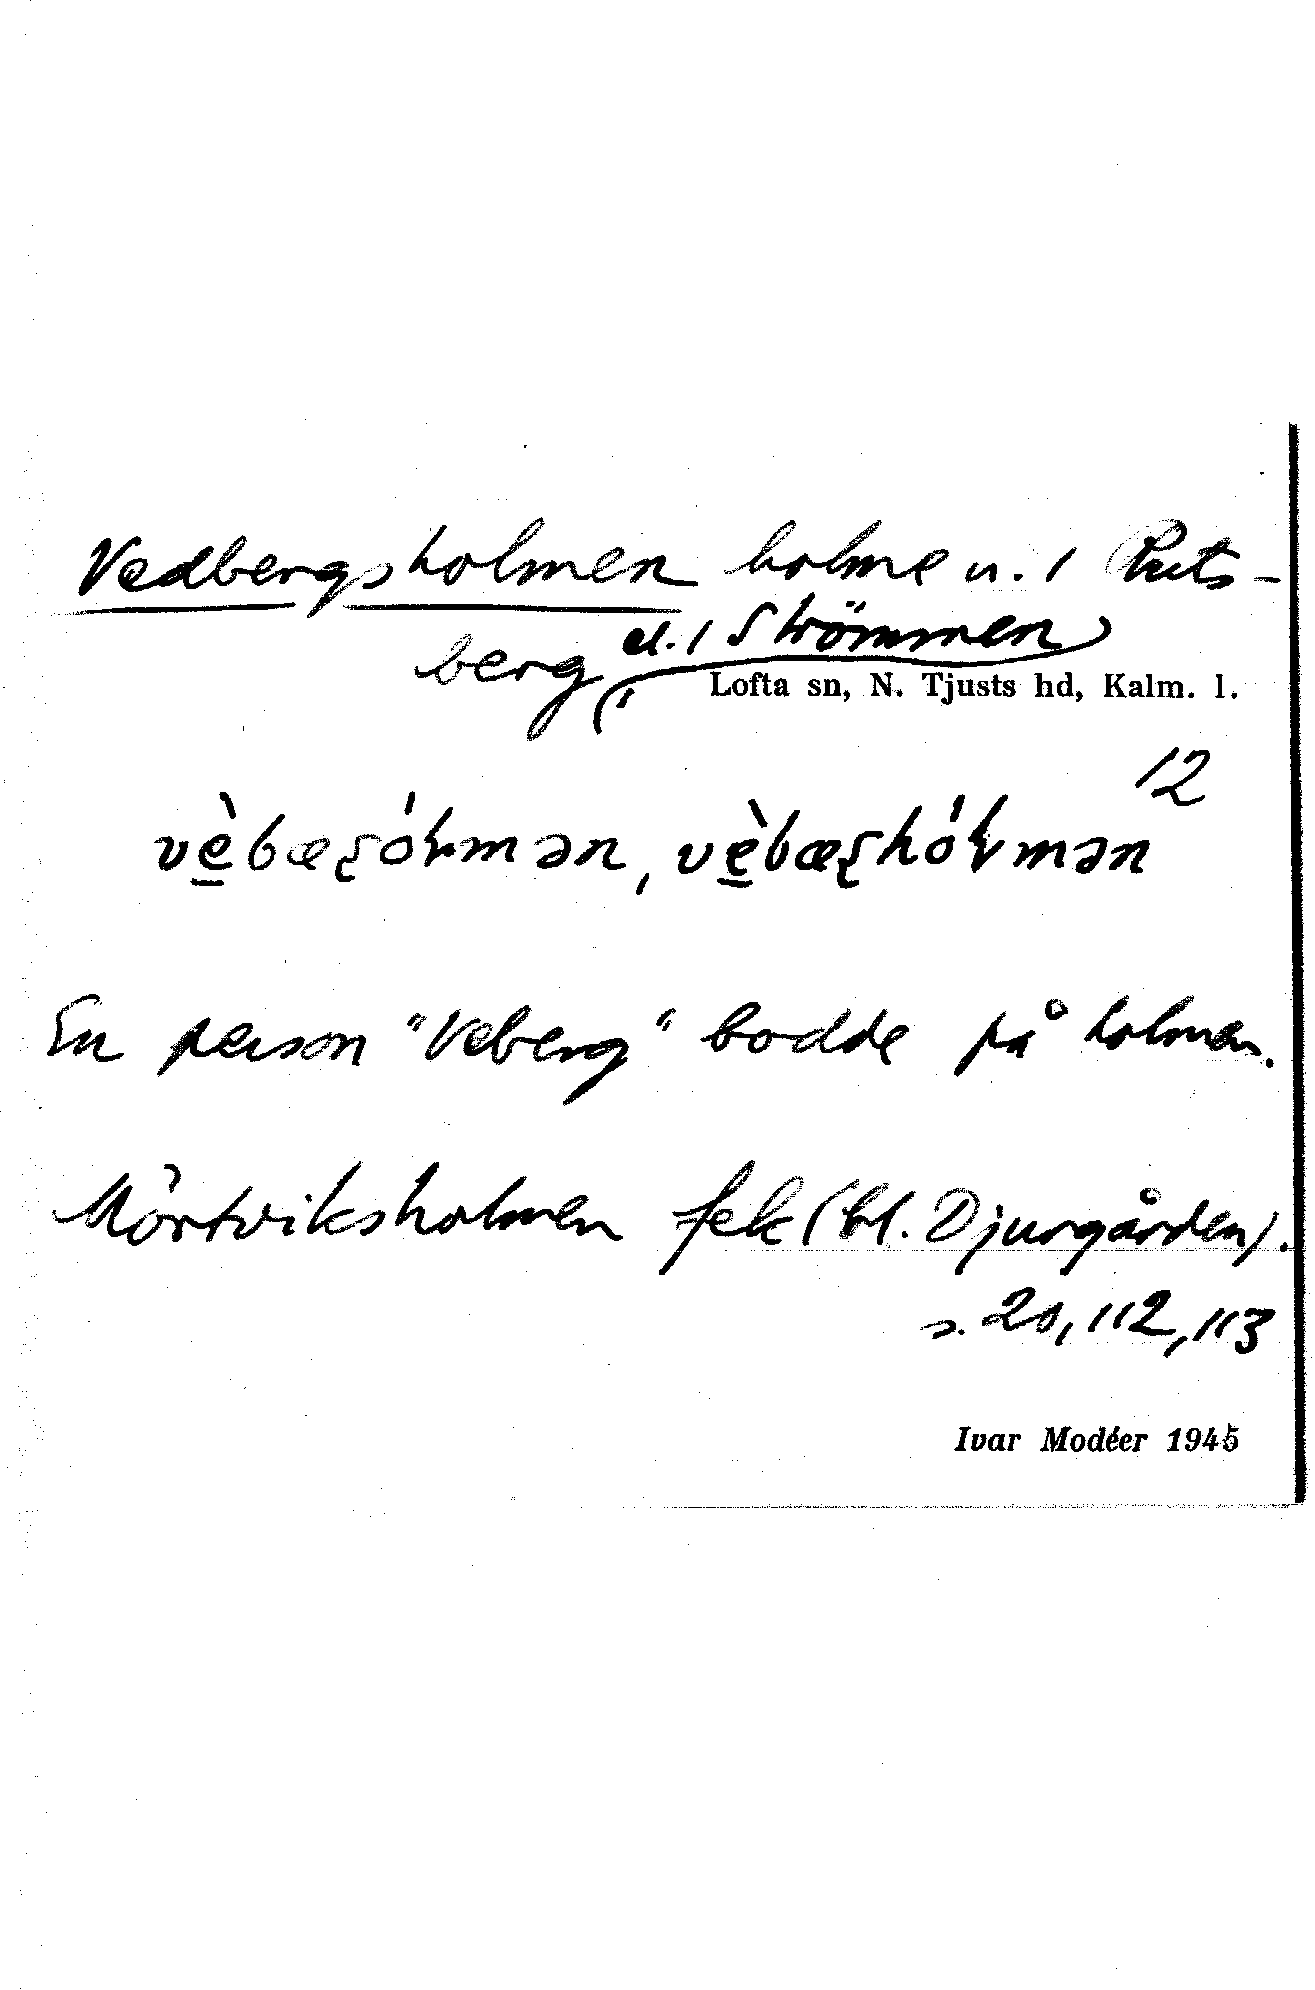 Vedbergsholmen holme u. 1 Ruts-
berg (el. 1 Strömmen)
Lofta sn, N. Tjusts hd, Kalm. l.
12
vè̱bæʂóɽmən, vè̱bæʂhóɽmən
En person "Veberg" bodde på holmen.
Mörtviksholmen fek (bl. Djurgården).
s. 20, 112, 113
Ivar Modéer 1945